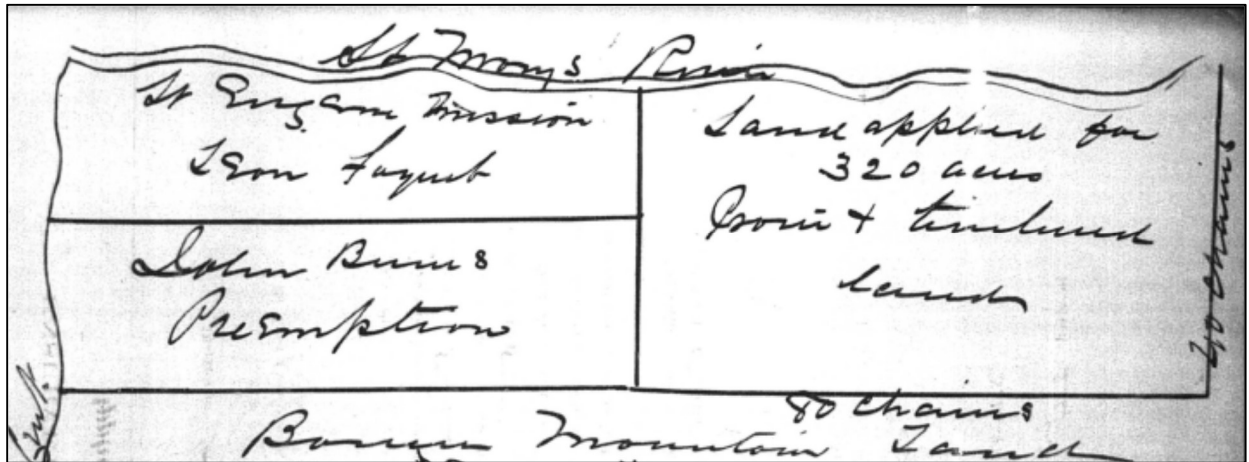 St Marys River
St Eugene Mission
Leon Fouquet
John Burns
Preemption
Land applied for
320 acres
Prairie + timbered
land
40 Chains
80 Chains
Mountain Land